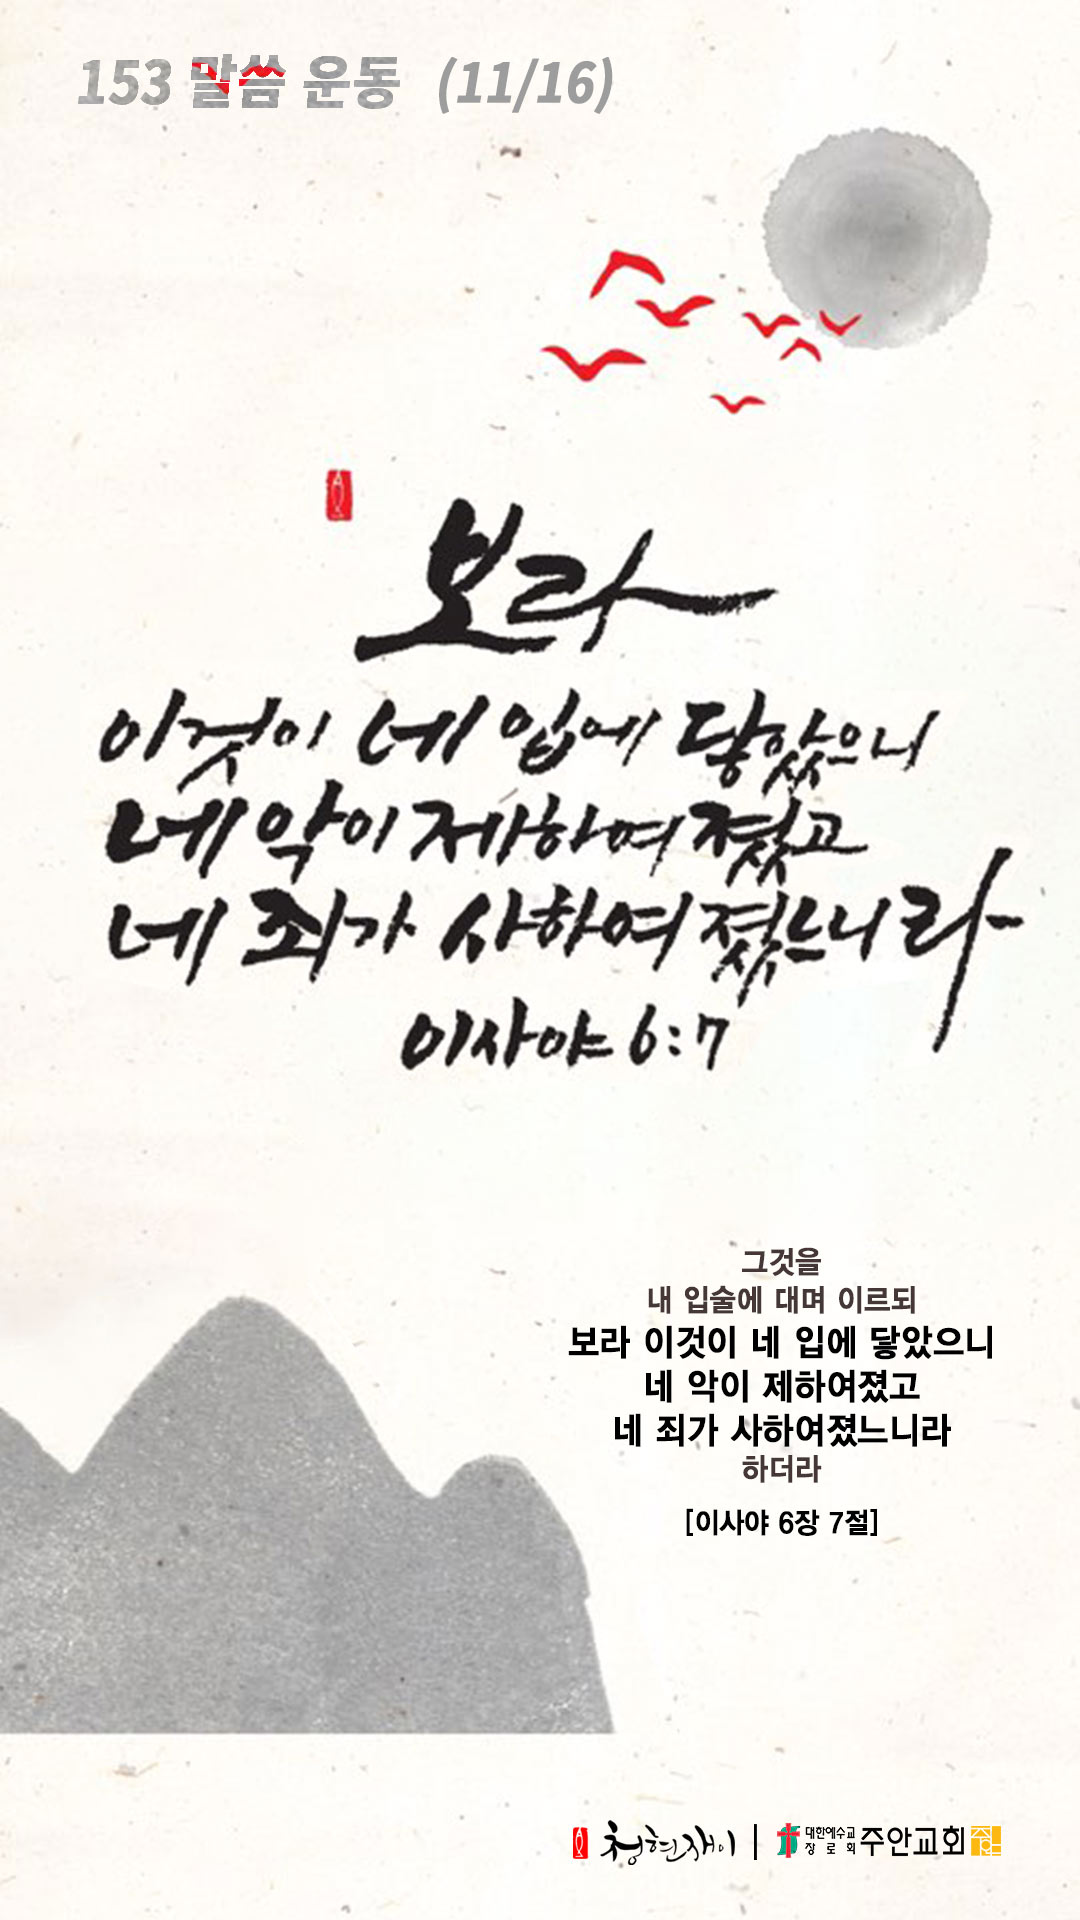 153 말씀 운동 (11/16)
보라
이것이 네 입에 닿았으니
네 악이 제하여 졌고
네 죄가 사하여 졌느니라
이사야 6:7
그것을
내 입술에 대며 이르되
보라 이것이 네 입에 닿았으니
네 악이 제하여졌고
네 죄가 사하여졌느니라
하더라
[이사야 6장 7절]
청현재이 | 대한예수교장로회 주안교회